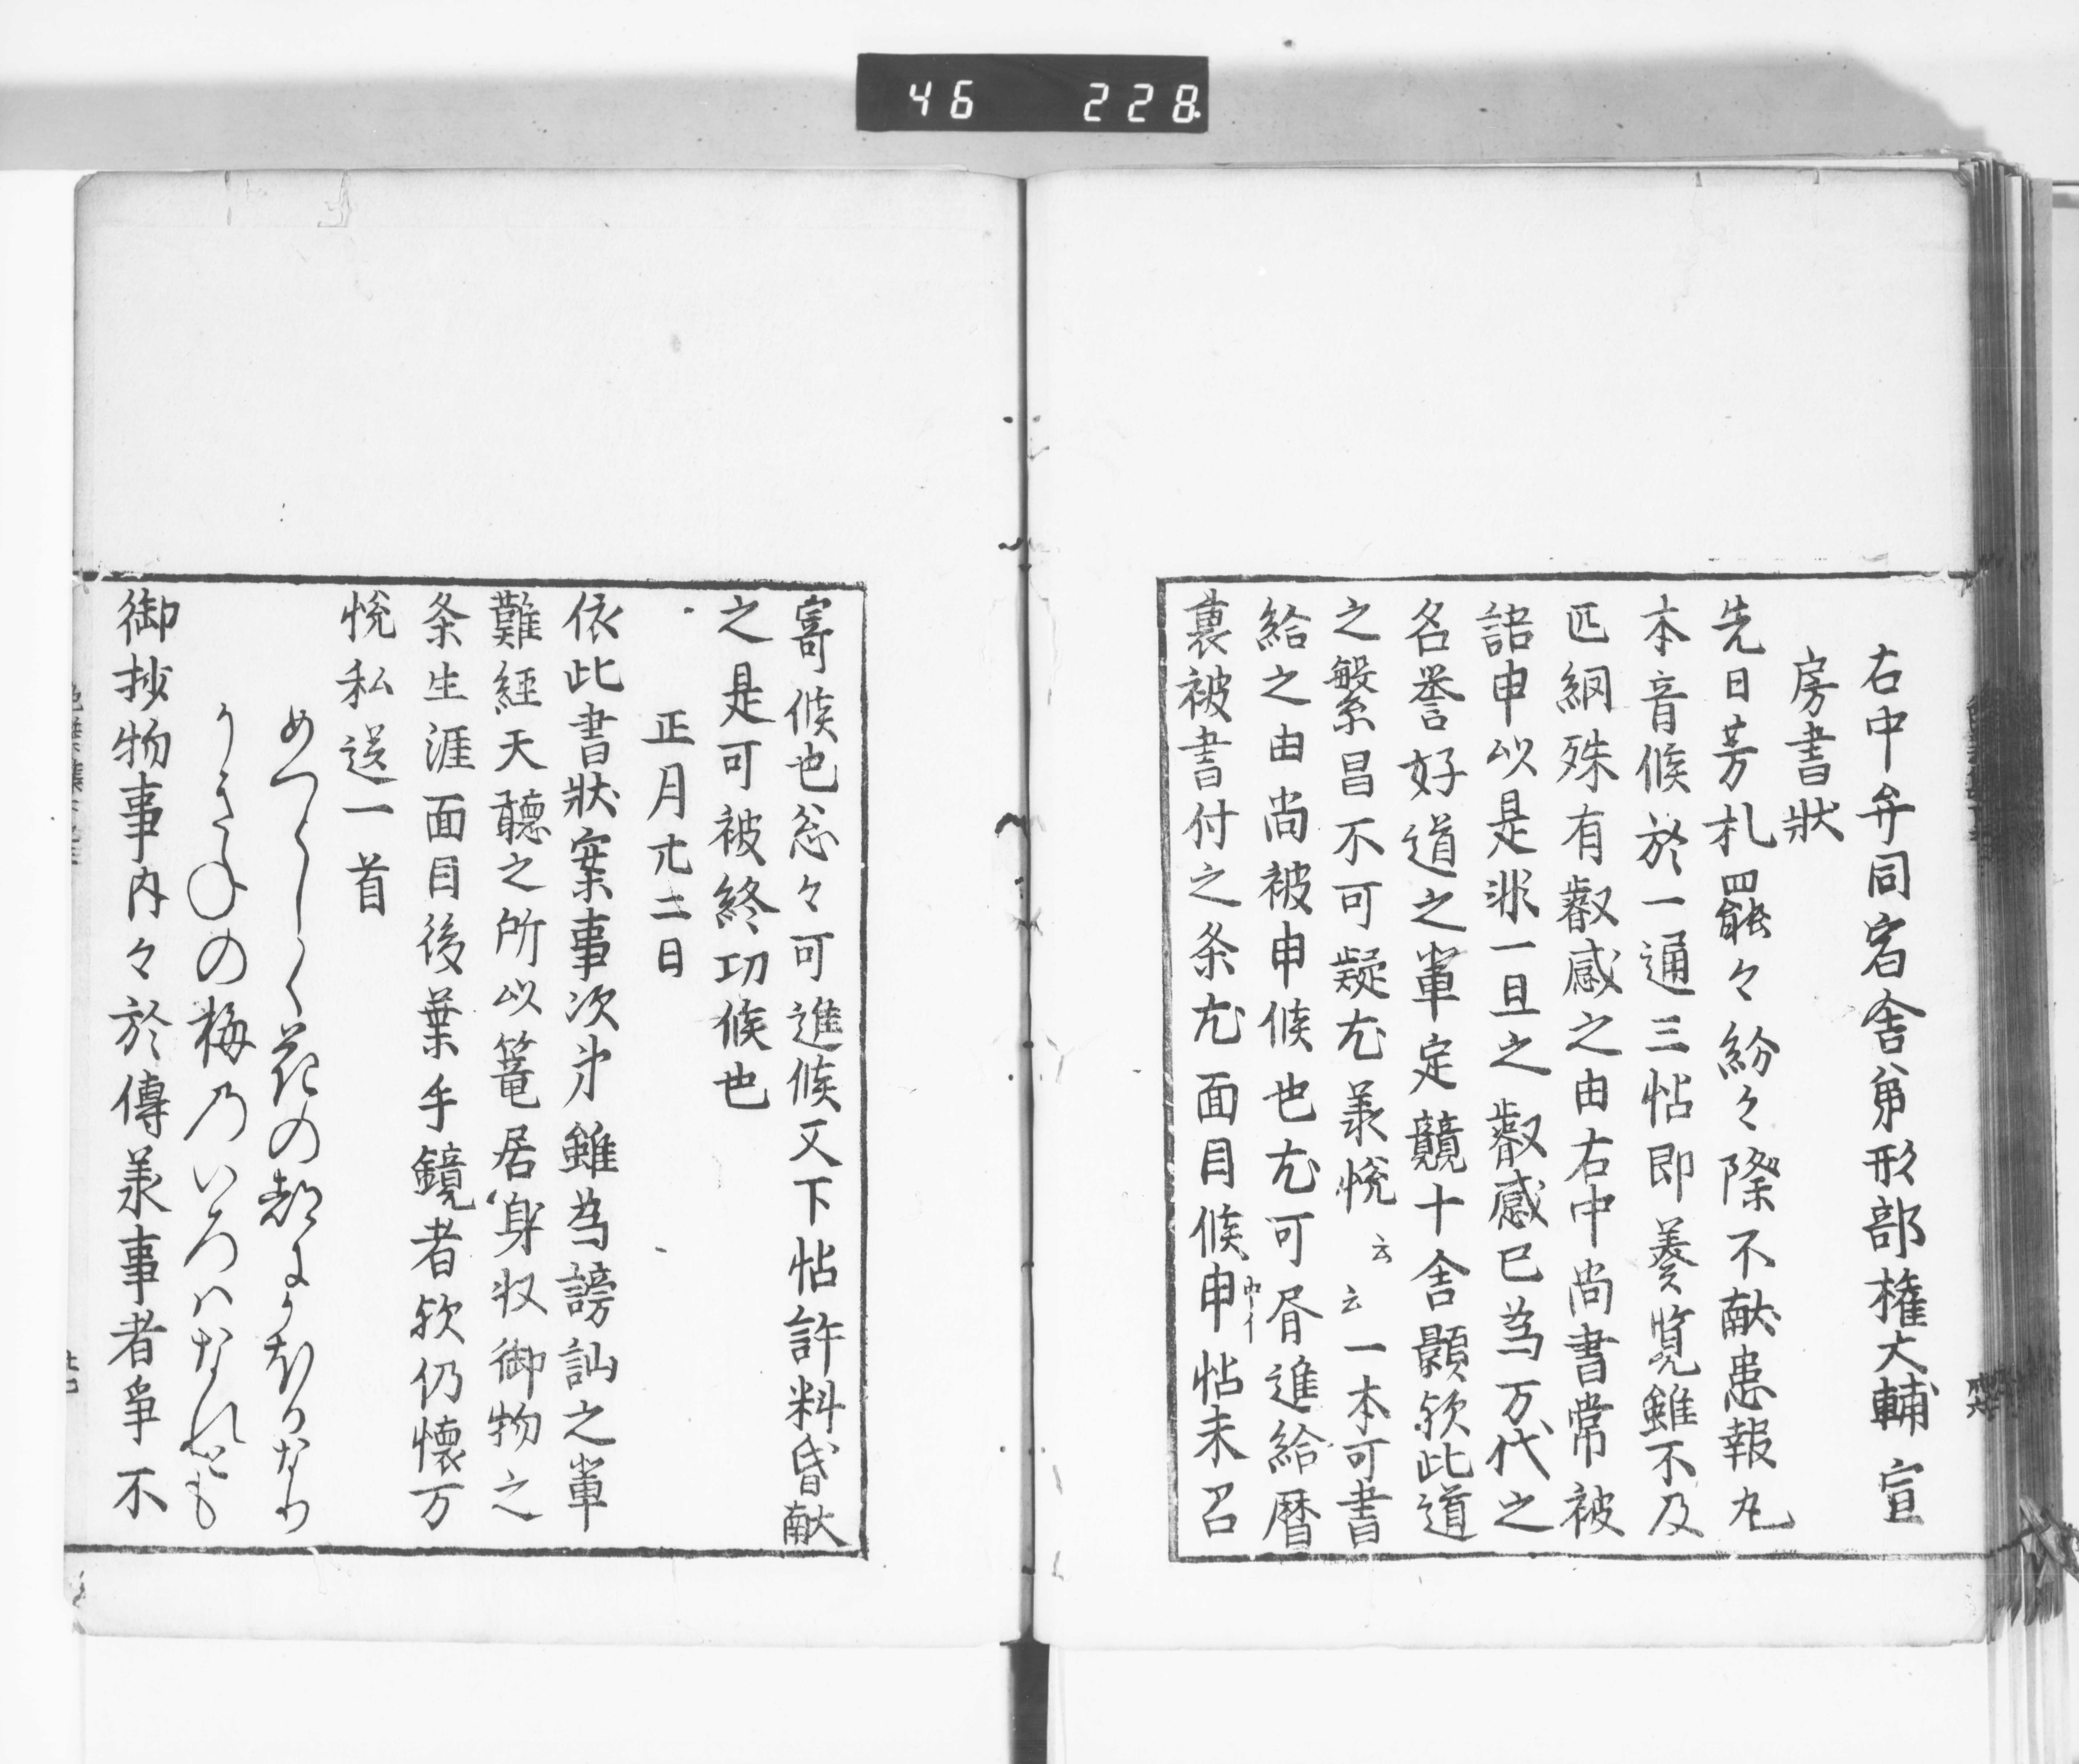 46 228
右中弁同宿舎弟形部権大輔宣
房書状
先日芳札罷々紛々際不献愚報尤
本音候於一通三帖即奏覧雖不及
匹綱殊有叡感之由右中尚書常被
語申以是非一旦之叡感已為万代之
名誉好道之輩定競十舎顕欤此道
之繁昌不可疑尤承悦云云一本可書
給之由尚被申候也尤可屑進給暦
裏被書付之条尤面目候申帖未召
寄候也忩々可進候又下帖許料昏献
之是可被終功候也
正月廿二日
依此書状案事次第雖為謗訕之輩
難經天聽之所以篭居身収御物之
条生涯面目後葉手鏡者欤仍懐万
悦私送一首
めつらしく花の都にかほるなり
うきねの梅乃いろハなれとも
御抄物事内々於傳承事者爭不